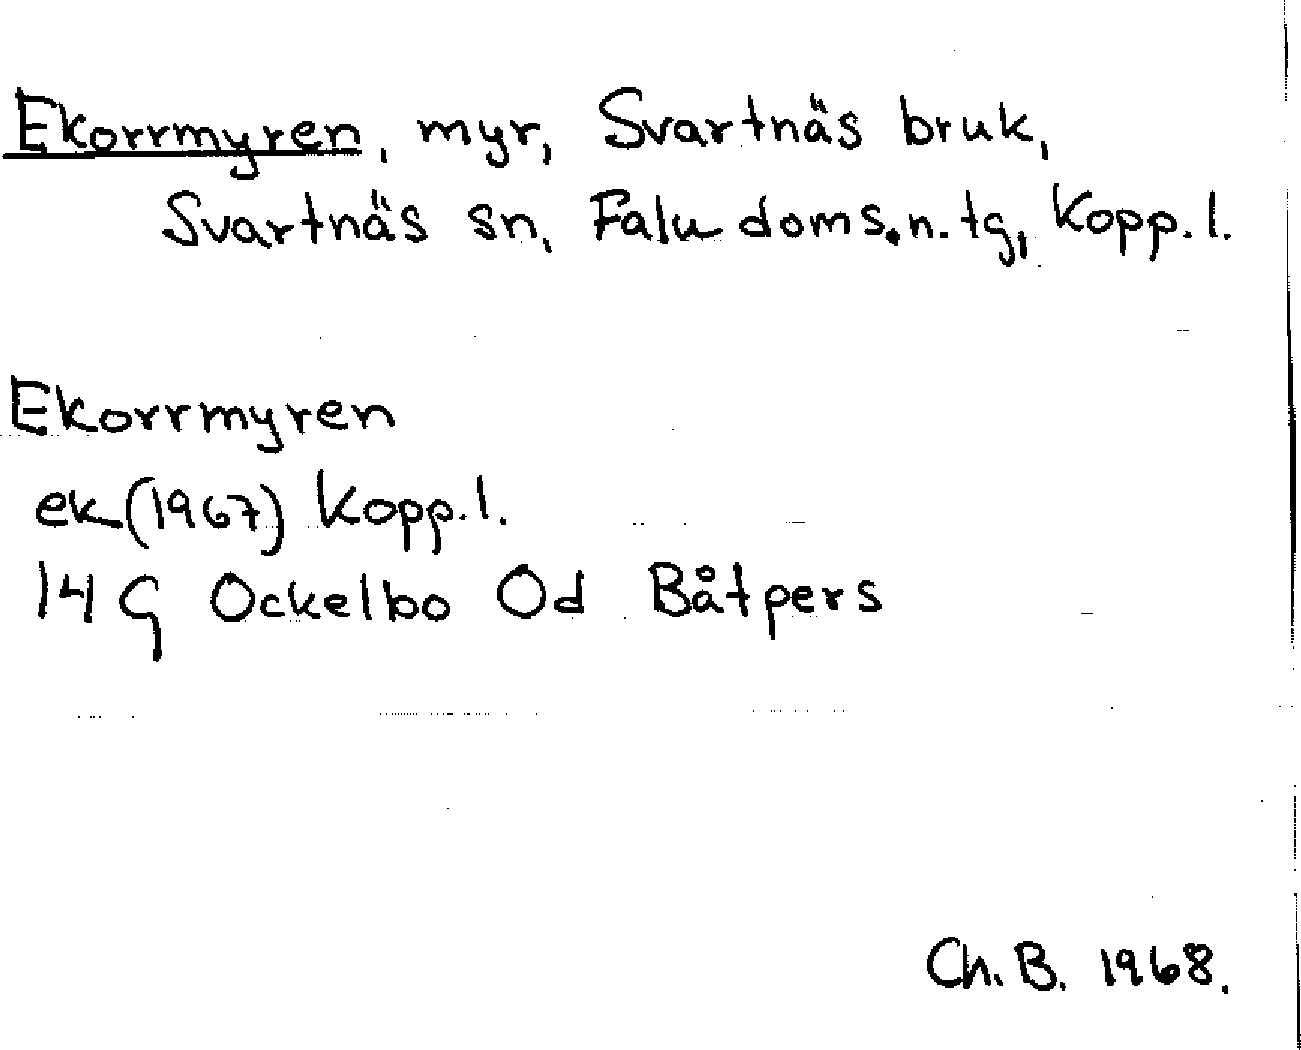 Ekorrmyren, myr, Svartnäs bruk,
Svartnäs sn, Falu doms.n.tg, Kopp.l.
Ekorrmyren
ek (1967) Kopp.l.
14 G Ockelbo Od Båtpers
Ch. B. 1968.